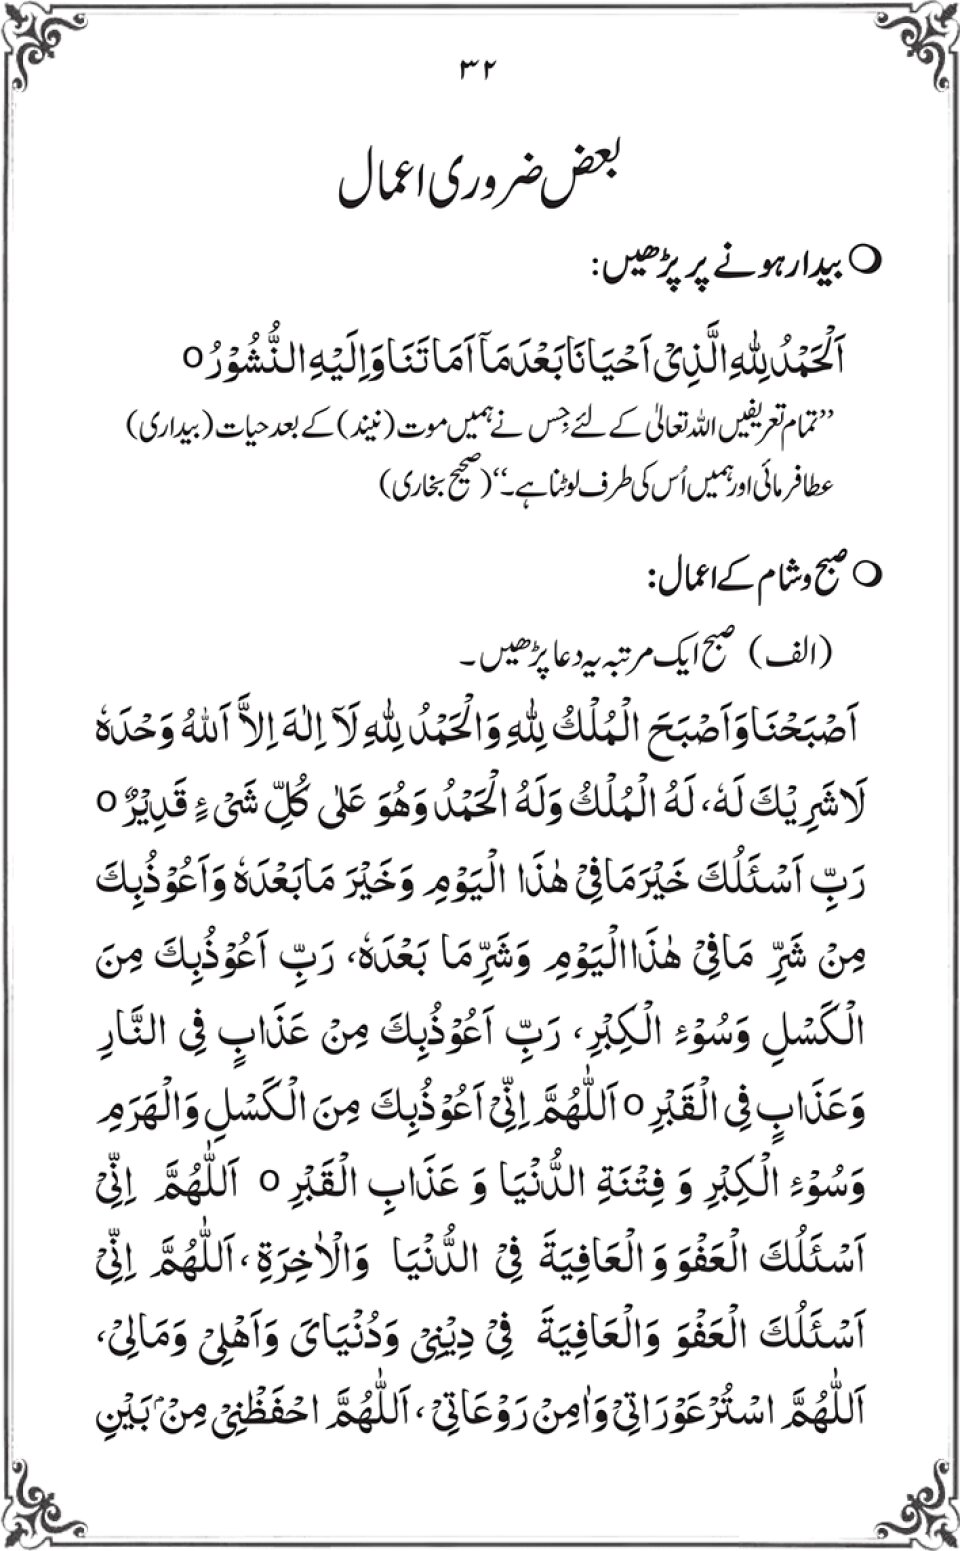 ۳۲
بعض ضروری اعمال
❍ بیدار ہونے پر پڑھیں:
اَلْحَمْدُ لِلّٰهِ الَّذِیْ اَحْیَانَا بَعْدَ مَآ اَمَاتَنَا وَاِلَیْهِ النُّشُوْرُ o
’’تمام تعریفیں اللہ تعالیٰ کے لئے جِس نے ہمیں موت (نیند) کے بعد حیات (بیداری)
عطا فرمائی اور ہمیں اُس کی طرف لوٹنا ہے۔‘‘ (صحیح بخاری)
❍ صبح و شام کے اعمال:
(الف) صبح ایک مرتبہ یہ دعا پڑھیں۔
اَصْبَحْنَا وَاَصْبَحَ الْمُلْكُ لِلّٰهِ وَالْحَمْدُ لِلّٰهِ لَآ اِلٰهَ اِلاَّ اَللهُ وَحْدَهٗ
لَا شَرِیْكَ لَهٗ، لَهُ الْمُلْكُ وَلَهُ الْحَمْدُ وَهُوَ عَلٰی كُلِّ شَیْءٍ قَدِیْرٌ o
رَبِّ اَسْئَلُكَ خَیْرَ مَا فِیْ هٰذَا الْیَوْمِ وَخَیْرَ مَا بَعْدَهٗ وَاَعُوْذُبِكَ
مِنْ شَرِّ مَا فِیْ هٰذَا الْیَوْمِ وَشَرِّ مَا بَعْدَهٗ، رَبِّ اَعُوْذُبِكَ مِنَ
الْكَسْلِ وَسُوْءِ الْكِبْرِ، رَبِّ اَعُوْذُبِكَ مِنْ عَذَابٍ فِی النَّارِ
وَعَذَابٍ فِی الْقَبْرِ o اَللّٰهُمَّ اِنِّیْ اَعُوْذُبِكَ مِنَ الْكَسْلِ وَالْهَرَمِ
وَسُوْءِ الْكِبْرِ وَ فِتْنَةِ الدُّنْیَا وَ عَذَابِ الْقَبْرِ o اَللّٰهُمَّ اِنِّیْ
اَسْئَلُكَ الْعَفْوَ وَ الْعَافِیَةَ فِیْ الدُّنْیَا وَالْاٰخِرَةِ، اَللّٰهُمَّ اِنِّیْ
اَسْئَلُكَ الْعَفْوَ وَالْعَافِیَةَ فِیْ دِیْنِیْ وَدُنْیَایَ وَاَهْلِیْ وَمَالِیْ،
اَللّٰهُمَّ اسْتُرْعَوْرَاتِیْ وَاٰمِنْ رَوْعَاتِیْ، اَللّٰهُمَّ احْفَظْنِیْ مِنْۢ بَیْنِ